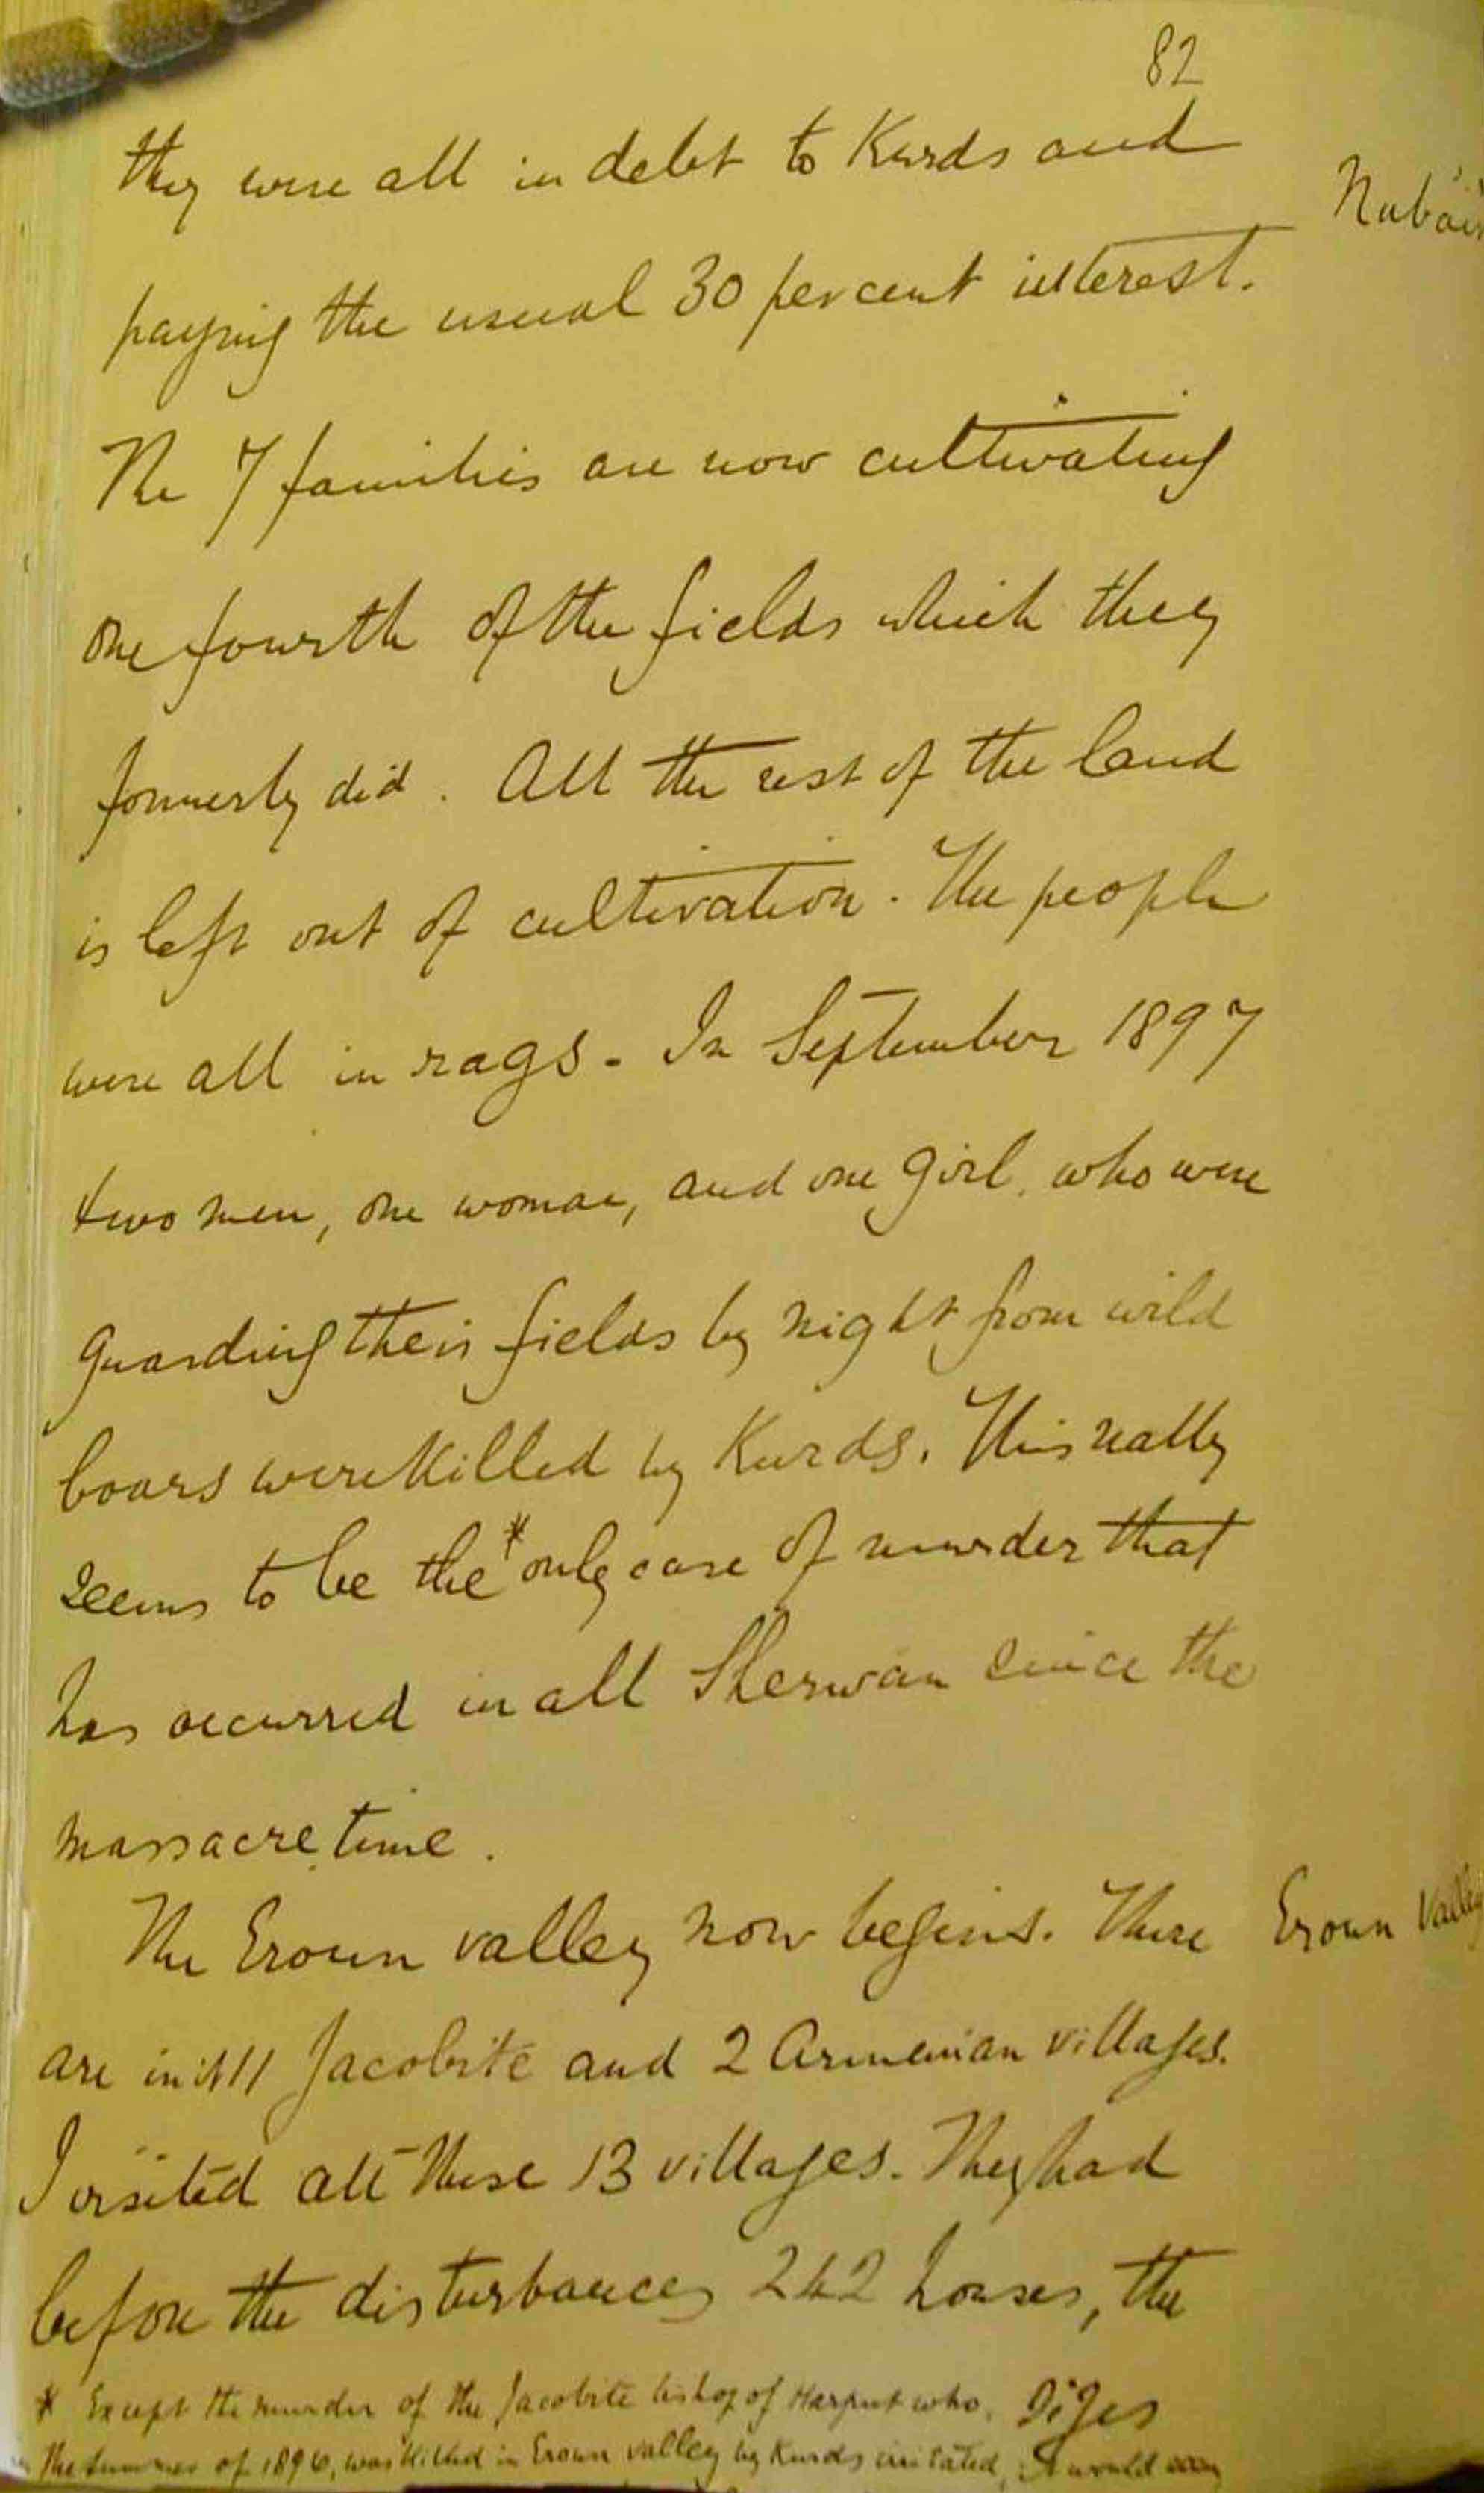 82
they were all in debt to Kurds and
paying the usual 30 per cent interest.
The 7 families are now cultivating
one fourth of the fields which they
formerly did. All the rest of the land
is left out of cultivation. The people
were all in rags. In September 1897
two men, one woman, and one girl, who were
guarding their fields by night from wild
boars were killed by Kurds. This really
seems to be the * only case of murder that
has occurred in all Sherwan since the
massacre time.
The Eroun valley now begins. There
Eroun Valley
are in it 11 Jacobite and 2 Armenian villages.
I visited all these 13 villages. They had
before the disturbances 242 houses, the
* Except the murder of the Jacobite bishop of Harput who,
in the summer of 1896, was killed in Eroun valley by Kurds incited, it would seem